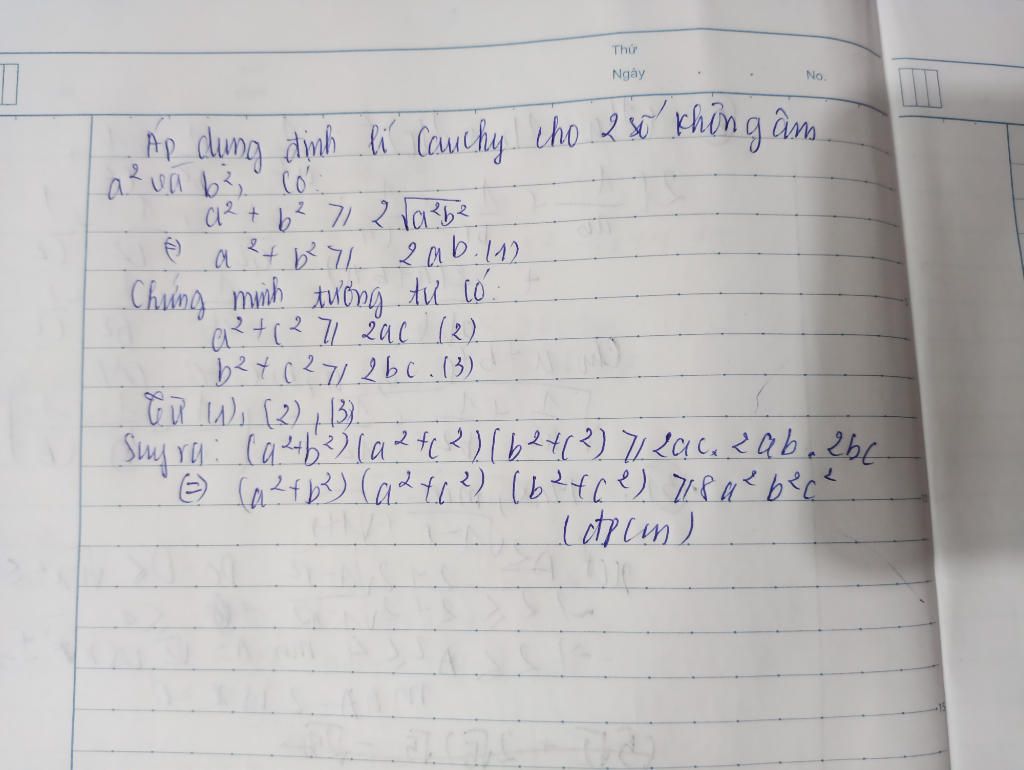 Thứ
Ngày . . No.
Áp dụng định lí Cauchy cho 2 số không âm
a² và b², có:
a² + b² ≥ 2√a²b²
⇔ a² + b² ≥ 2ab. (1)
Chứng minh tương tự có:
a² + c² ≥ 2ac (2)
b² + c² ≥ 2bc. (3)
Từ (1), (2), (3)
Suy ra: (a²+b²)(a²+c²)(b²+c²) ≥ 2ac. 2ab. 2bc
⇔ (a²+b²)(a²+c²)(b²+c²) ≥ 8a²b²c²
(đpcm)